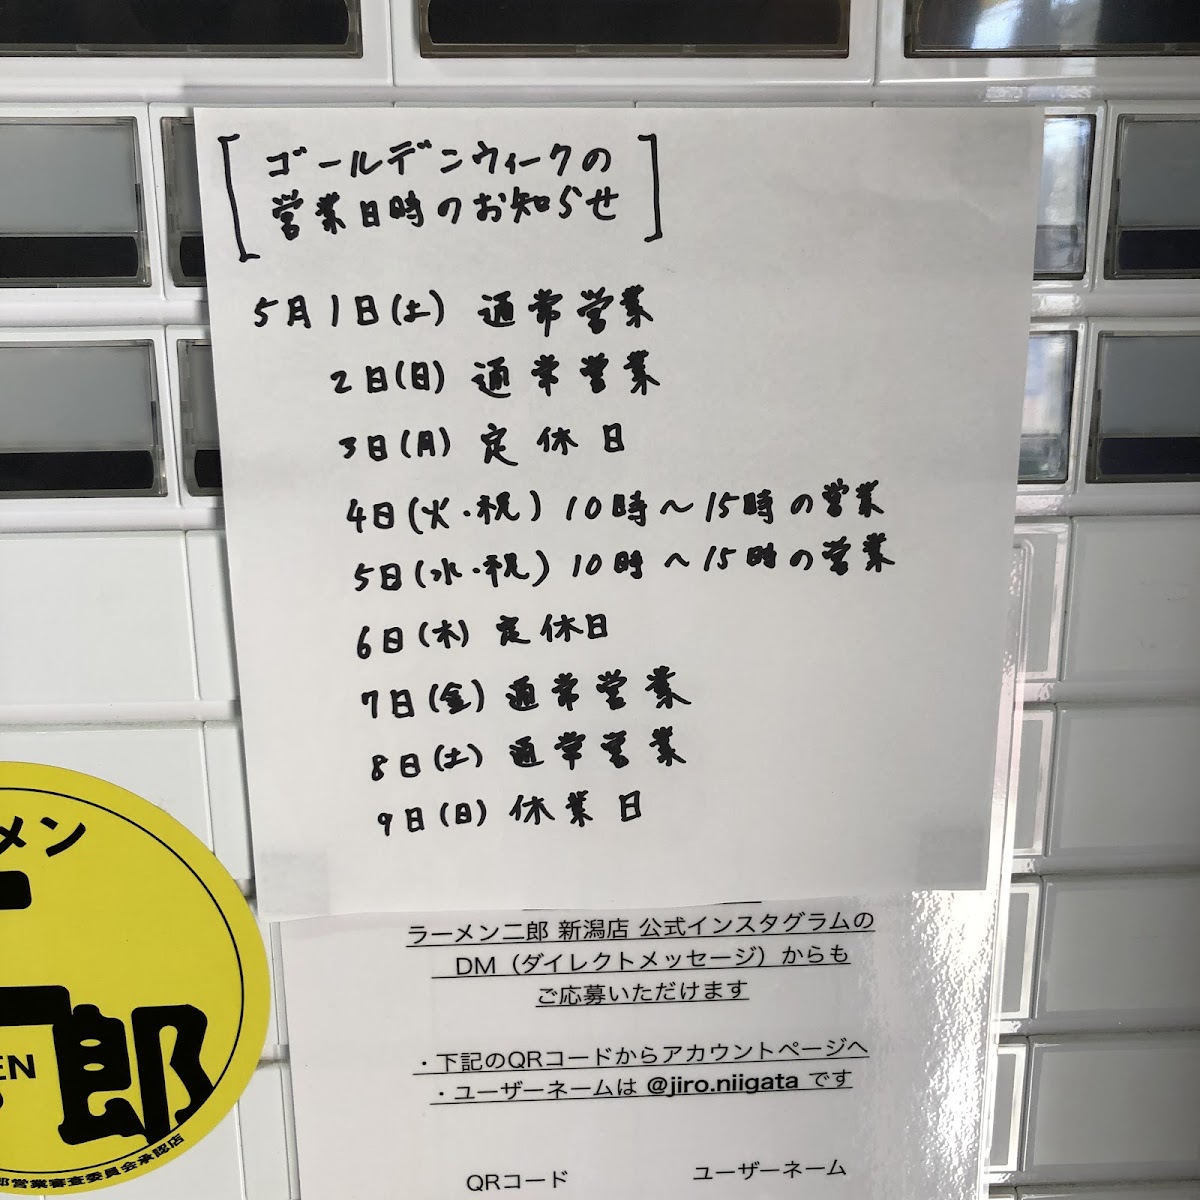 ゴールデンウィークの
営業日時のお知らせ
5月1日(土) 通常営業
2日(日) 通常営業
3日(月) 定休日
4日(火・祝) 10時〜15時の営業
5日(水・祝) 10時〜15時の営業
6日(木) 定休日
7日(金) 通常営業
8日(土) 通常営業
9日(日) 休業日
ラーメン二郎 新潟店 公式インスタグラムの
DM（ダイレクトメッセージ）からも
ご応募いただけます
・下記のQRコードからアカウントページへ
・ユーザーネームは @jiro.niigata です
QRコード ユーザーネーム
メン
郎
EN
郎営業審査委員会承認店